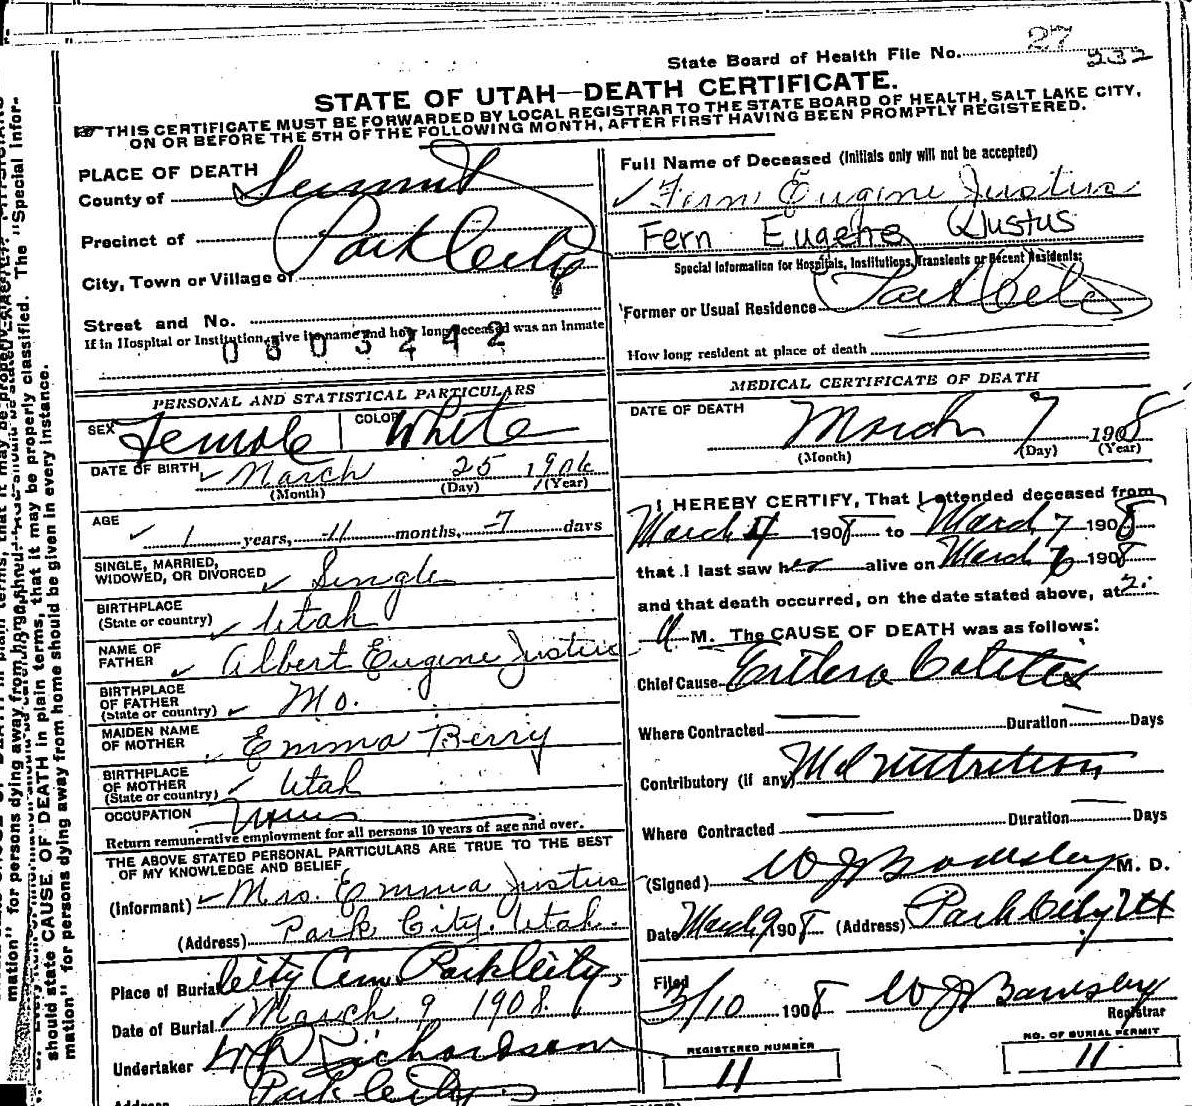 State Board of Health File No. 27
232
STATE OF UTAH—DEATH CERTIFICATE.
THIS CERTIFICATE MUST BE FORWARDED BY LOCAL REGISTRAR TO THE STATE BOARD OF HEALTH, SALT LAKE CITY,
ON OR BEFORE THE 5TH OF THE FOLLOWING MONTH, AFTER FIRST HAVING BEEN PROMPTLY REGISTERED.
PLACE OF DEATH
County of Summit
Precinct of Park City
City, Town or Village of
Street and No.
If in Hospital or Institution, give its name and how long deceased was an inmate
0803242
PERSONAL AND STATISTICAL PARTICULARS
SEX Female COLOR White
DATE OF BIRTH March 25 1906
(Month) (Day) (Year)
AGE
1 years, 11 months, 7 days
SINGLE, MARRIED,
WIDOWED, OR DIVORCED Single
BIRTHPLACE
(State or country) Utah
NAME OF
FATHER Albert Eugene Justus
BIRTHPLACE
OF FATHER
(State or country) Mo.
MAIDEN NAME
OF MOTHER Emma Berry
BIRTHPLACE
OF MOTHER
(State or country) Utah
OCCUPATION
Return remunerative employment for all persons 10 years of age and over.
THE ABOVE STATED PERSONAL PARTICULARS ARE TRUE TO THE BEST
OF MY KNOWLEDGE AND BELIEF
(Informant) Mrs. Emma Justus
(Address) Park City. Utah.
Place of Burial City Cem Park City,
Date of Burial March 9 1908.
Undertaker Richardson
Park City
Address
Full Name of Deceased (Initials only will not be accepted)
Fern Eugene Justus
Fern Eugene Justus
Special Information for Hospitals, Institutions, Transients or Recent Residents:
Former or Usual Residence Park City
How long resident at place of death
MEDICAL CERTIFICATE OF DEATH
DATE OF DEATH March 7 1908
(Month) (Day) (Year)
I HEREBY CERTIFY, That I attended deceased from
March 4 1908 to March 7 1908
that I last saw her alive on March 7 1908
and that death occurred, on the date stated above, at 2
a M. The CAUSE OF DEATH was as follows:
Chief Cause Entero Colitis
Where Contracted Duration Days
Contributory (if any) Malnutrition
Where Contracted Duration Days
(Signed) W J Bardsley M. D.
Date March 9 1908 (Address) Park City Ut
Filed
3/10 1908 W J Bardsley
Registrar
REGISTERED NUMBER
11
NO. OF BURIAL PERMIT
11